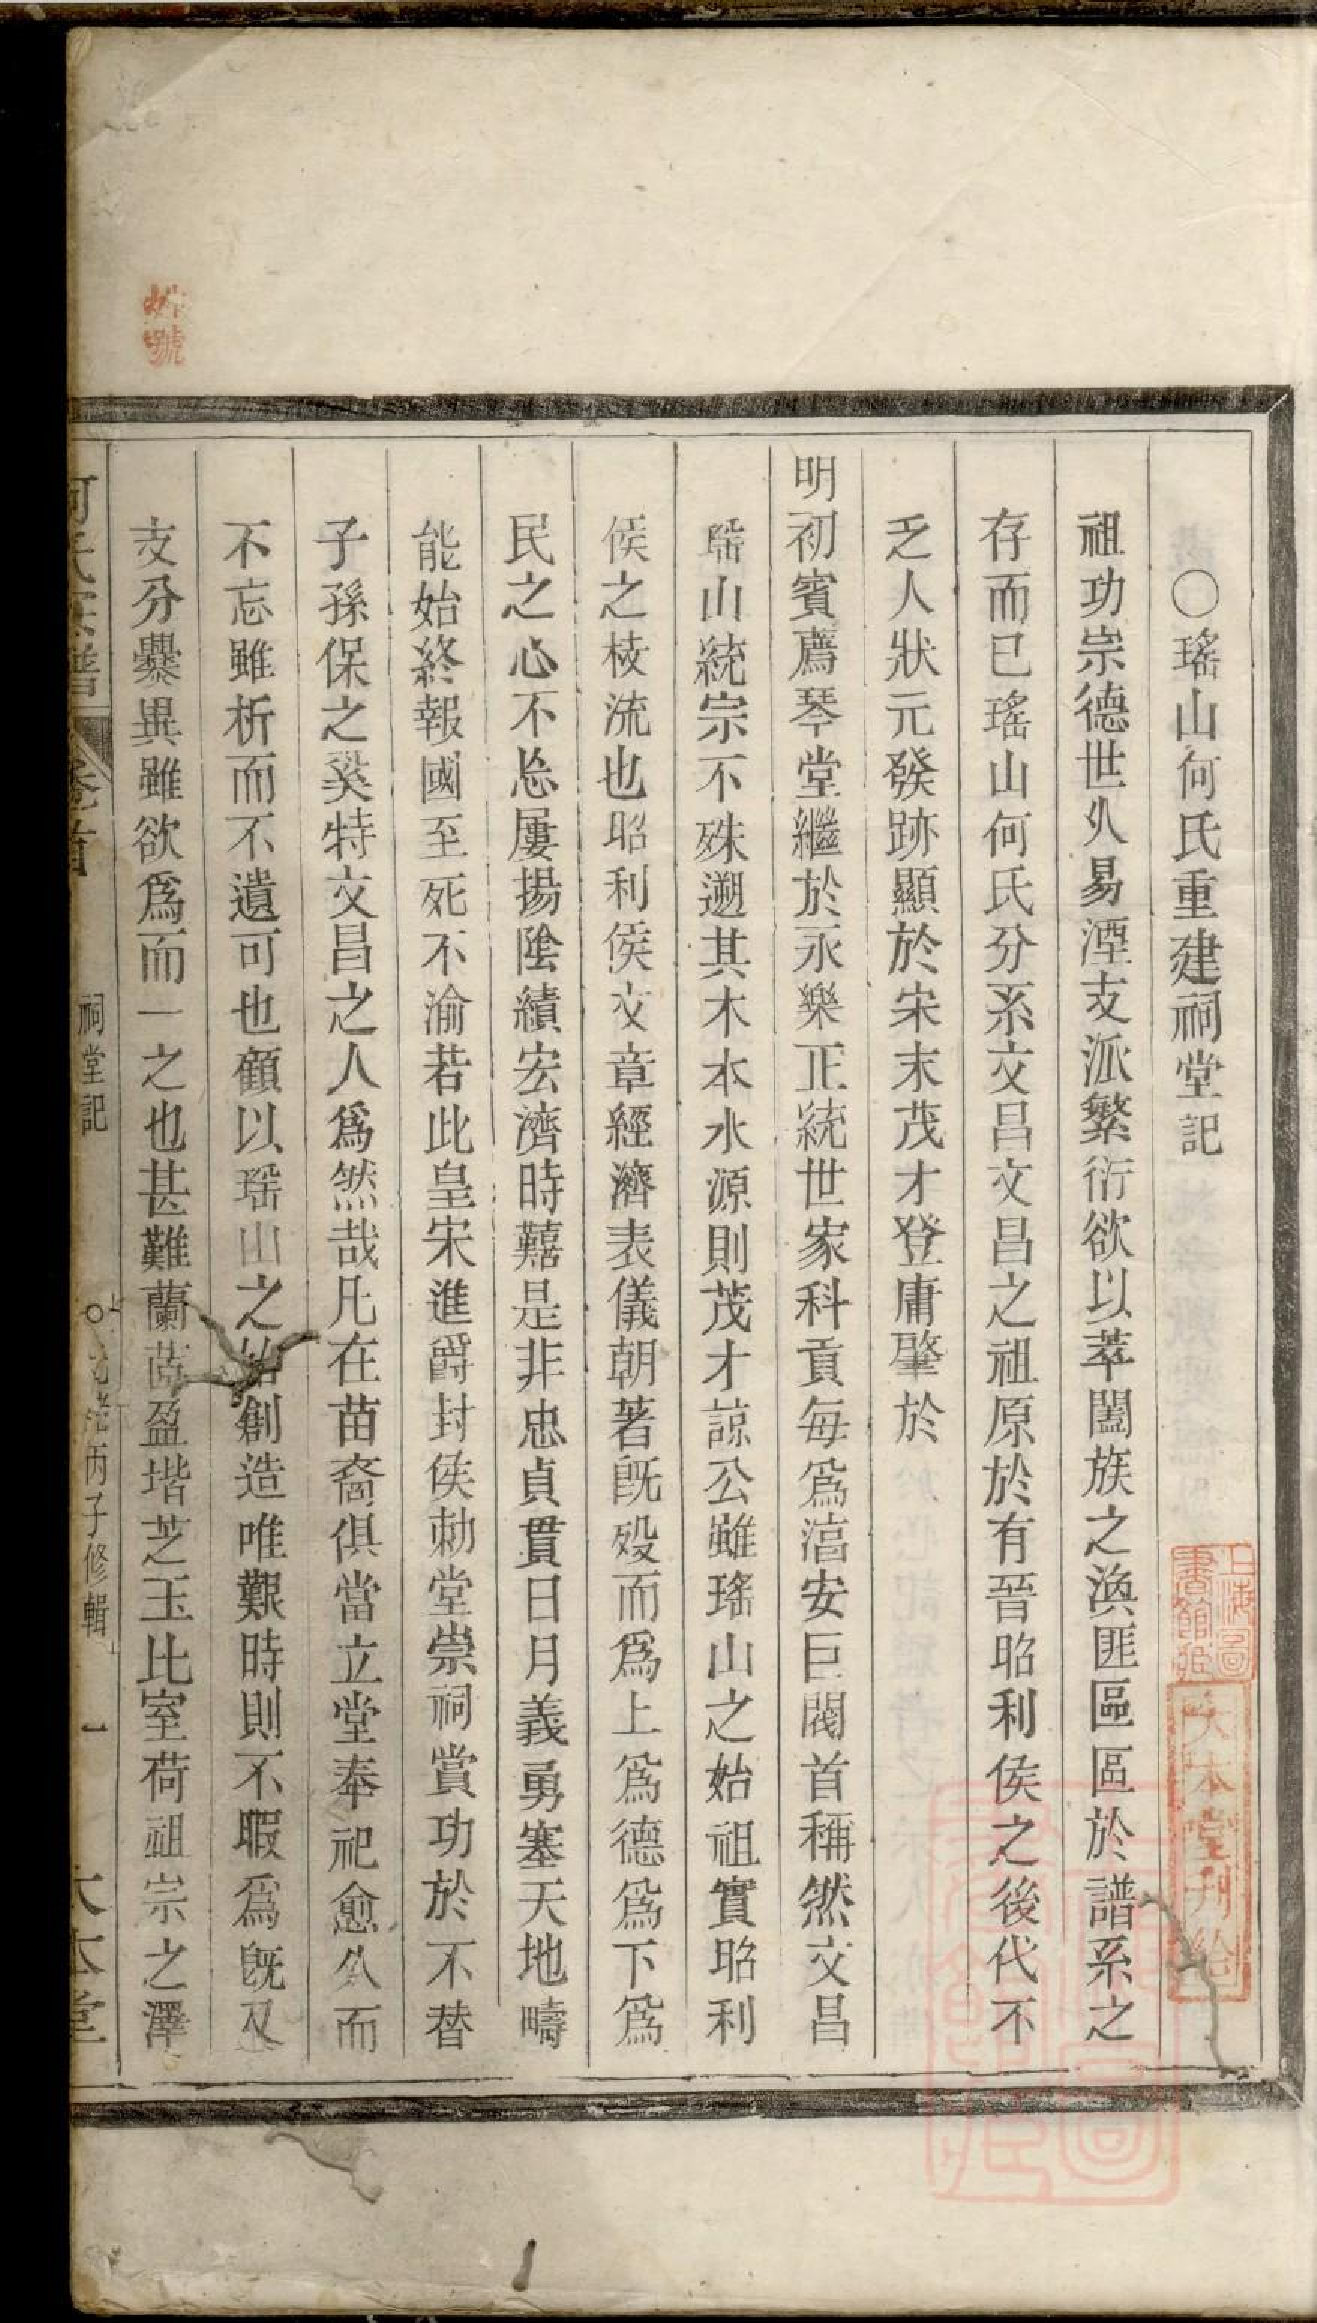 〇瑤山何氏重建祠堂記
祖功宗德世久易湮支派繁衍欲以萃闔族之渙匪區區於譜系之
存而已瑤山何氏分系文昌文昌之祖原於有晉昭利侯之後代不
乏人狀元發跡顯於宋末茂才登庸肇於
明初賓薦琴堂繼於永樂正統世家科貢每爲湻安巨閥首稱然文昌
瑤山統宗不殊遡其木本水源則茂才諒公雖瑤山之始祖實昭利
侯之枝流也昭利侯文章經濟表儀朝著既歿而爲上爲德爲下爲
民之心不忘屢揚陰績宏濟時囏是非忠貞貫日月義勇塞天地疇
能始終報國至死不渝若此皇宋進爵封侯勅堂崇祠賞功於不替
子孫保之奚特文昌之人爲然哉凡在苗裔俱當立堂奉祀愈久而
不忘雖析而不遺可也顧以瑤山之始創造唯艱時則不暇爲既又
支分爨異雖欲爲而一之也甚難蘭茁盈堦芝玉比室荷祖宗之澤
何氏宗譜
卷首
祠堂記
光緒丙子修輯
一
大本堂
上海圖書館藏
大本堂刊給
號